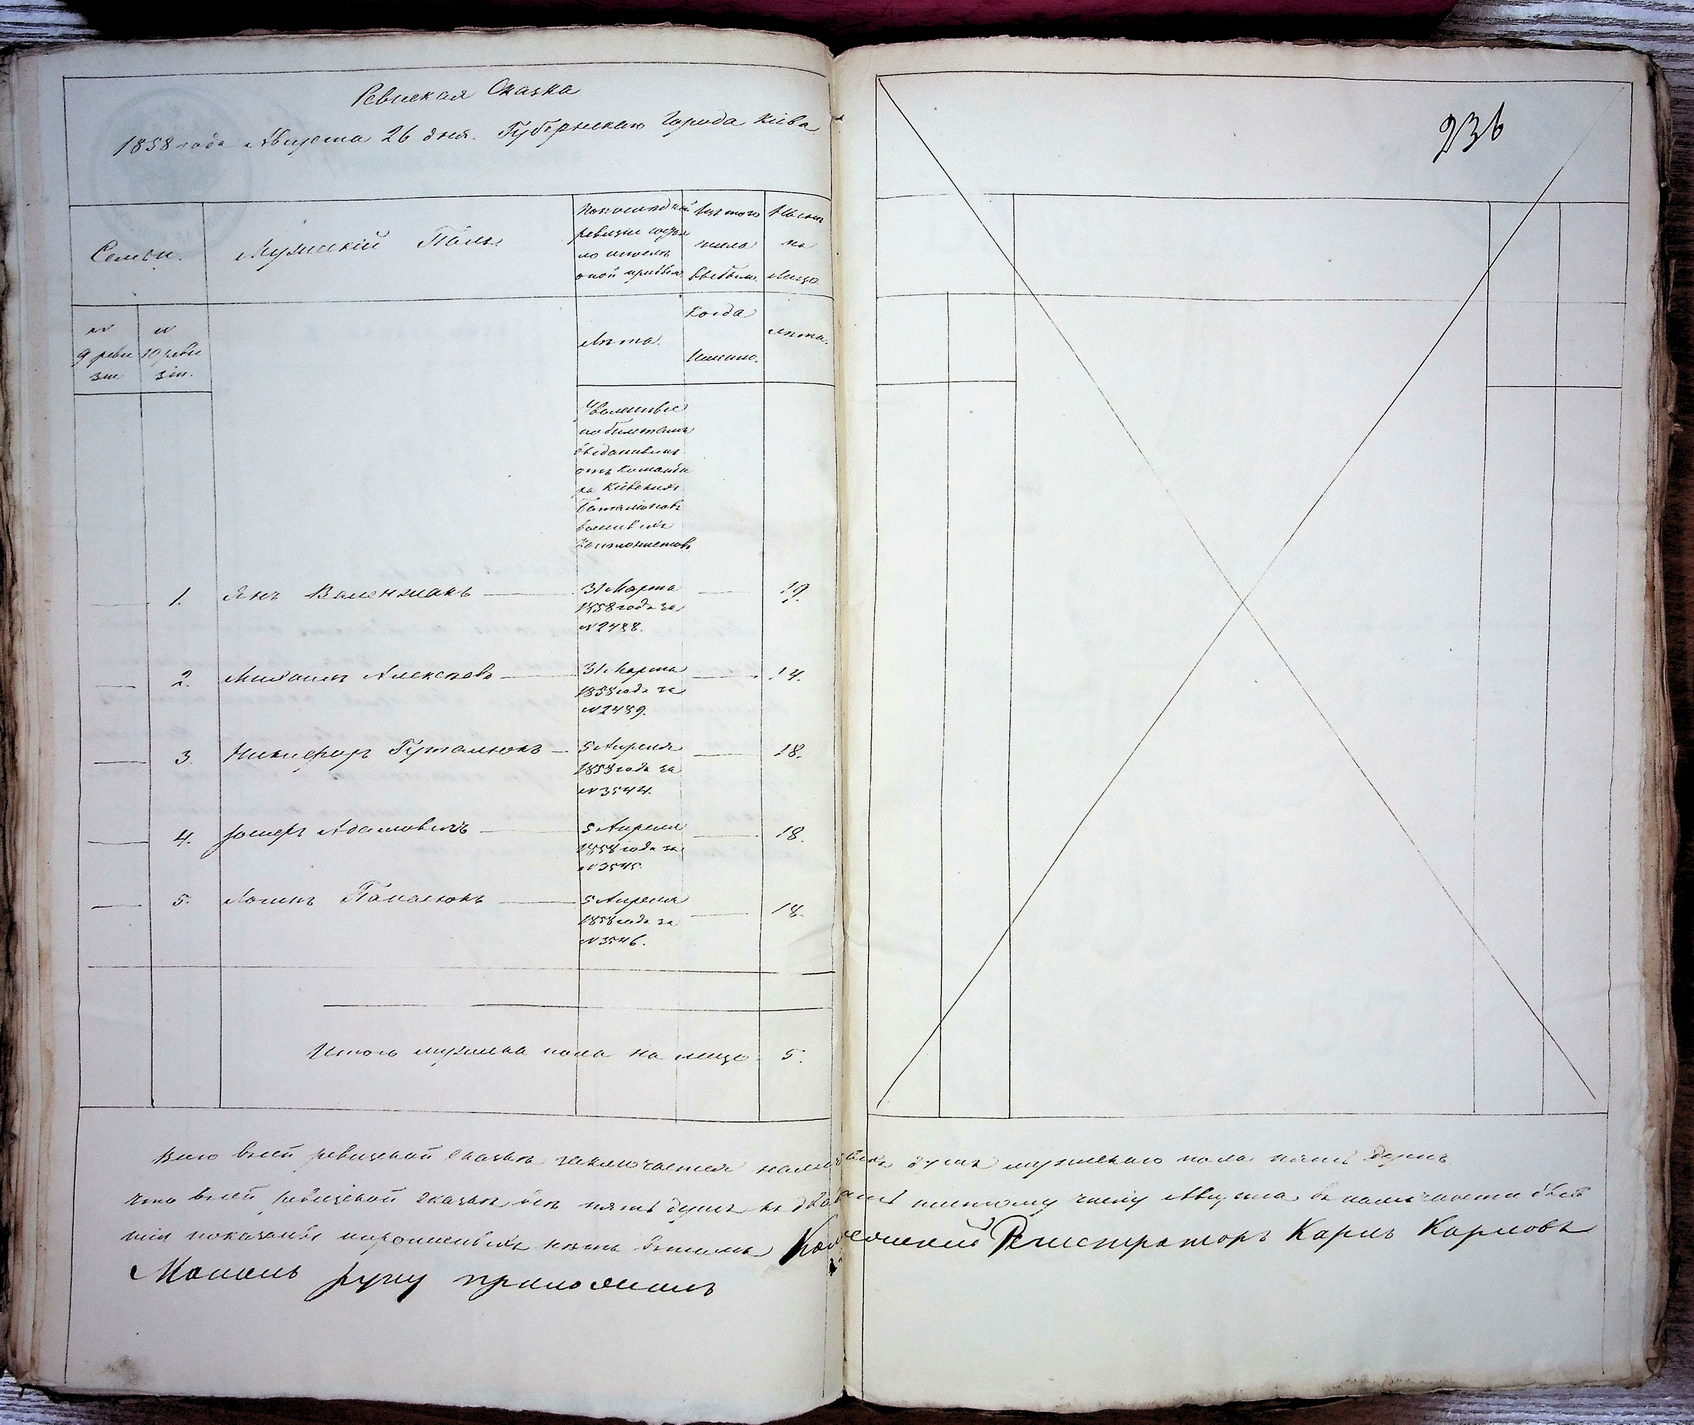 Ревиская Сказка
1858 года Августа 26 дня. Губернскаго Города Кіева
236
Семьи.
Мужескій Полъ
По последней
ревизіи состоя
ло и после
оной прибыло
Изъ того
числа
выбыло
Ныне
на
лицо
№
9 реви
зіи
№
10 реви
зіи.
Лѣта.
Когда
именно.
лѣта.
Уволенные
по билетамъ
выданнымъ
отъ Команди
ра Кіевскихъ
Баталіоновъ
военныхъ
Кантонистовъ
1. Янъ Валентакъ 31 Марта 19.
1858 года за
№ 2488.
2. Михаилъ Алексѣевъ 31 Марта 14.
1858 года за
№ 2489.
3. Никифоръ Гуталюкъ 5 Апреля 18.
1858 года за
№ 3544.
4. Іосифъ Адамовичъ 5 Апреля 18.
1858 года за
№ 3545.
5. Логинъ Панасюкъ 5 Апреля 18.
1858 года за
№ 3546.
Итого мужеска пола на лицо 5.
Всего въ сей ревизской сказкѣ заключается наличныхъ душъ мужескаго пола пять душъ
что въ сей ревизской сказкѣ всѣ пять душъ къ двадцать шестому числу Августа въ наличности быв
шія показаны и пропущенныхъ нѣтъ въ томъ Коллежскій Регистраторъ Карлъ Карловъ
руку приложилъ